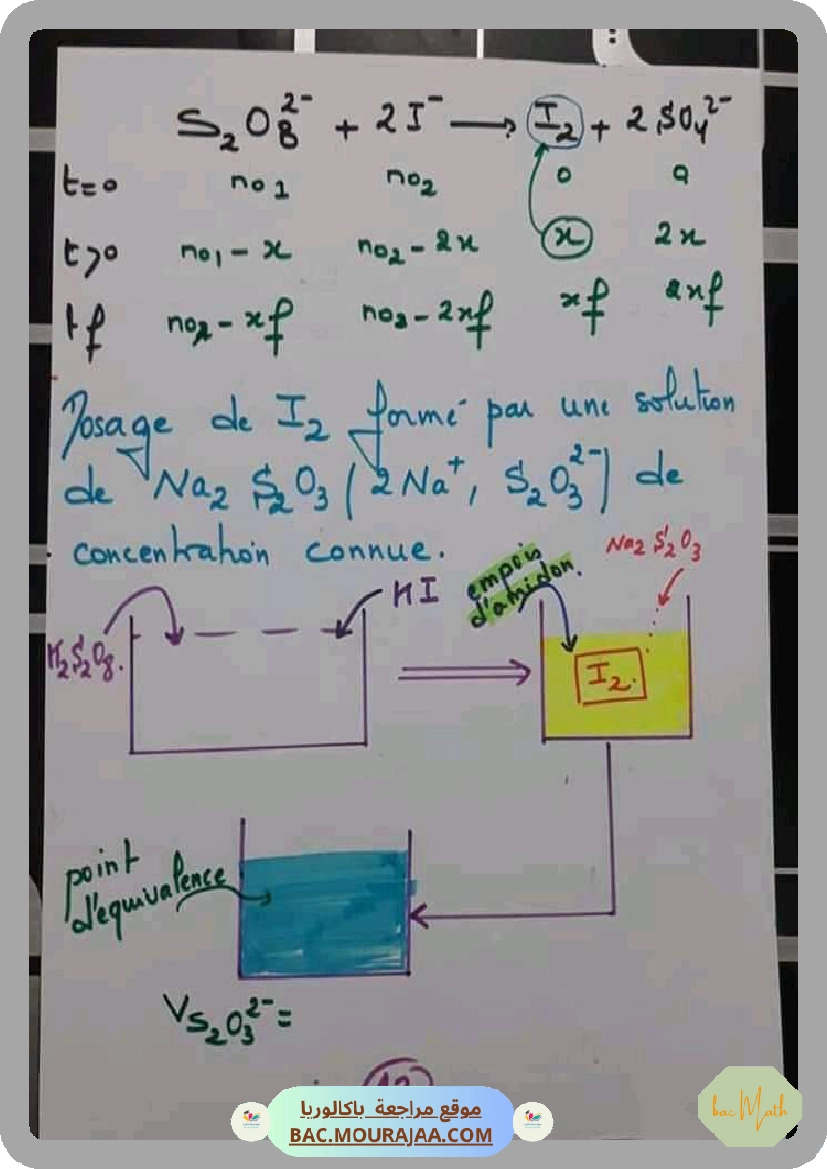 S₂O₈²⁻ + 2I⁻ → I₂ + 2SO₄²⁻
t=0 n01 n02 0 0
t>0 n01 - x n02 - 2x x 2x
tf n02 - xf n02 - 2xf xf 2xf
Dosage de I₂ formé par une solution
de Na₂S₂O₃ (2Na⁺, S₂O₃²⁻) de
concentration connue.
K₂S₂O₈.
KI
empois
d'amidon.
Na₂S₂O₃
I₂.
point
d'équivalence
V S₂O₃²⁻ =
موقع مراجعة باكالوريا
BAC.MOURAJAA.COM
bac Math